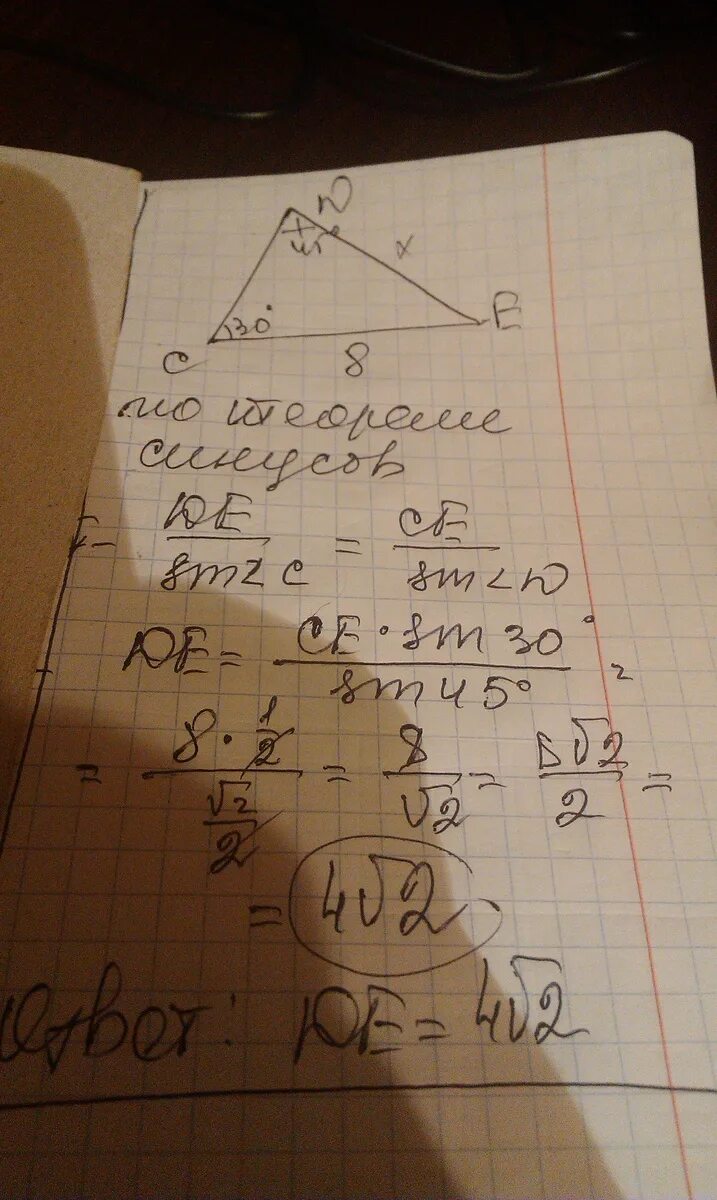 D
45°
x
30°
E
C
8
по теореме
синусов
DE/sin∠C = CE/sin∠D
DE = CE·sin30°/sin45° =
= 8·1/2/√2/2 = 8/√2 = 8√2/2 =
= 4√2
Ответ: DE = 4√2